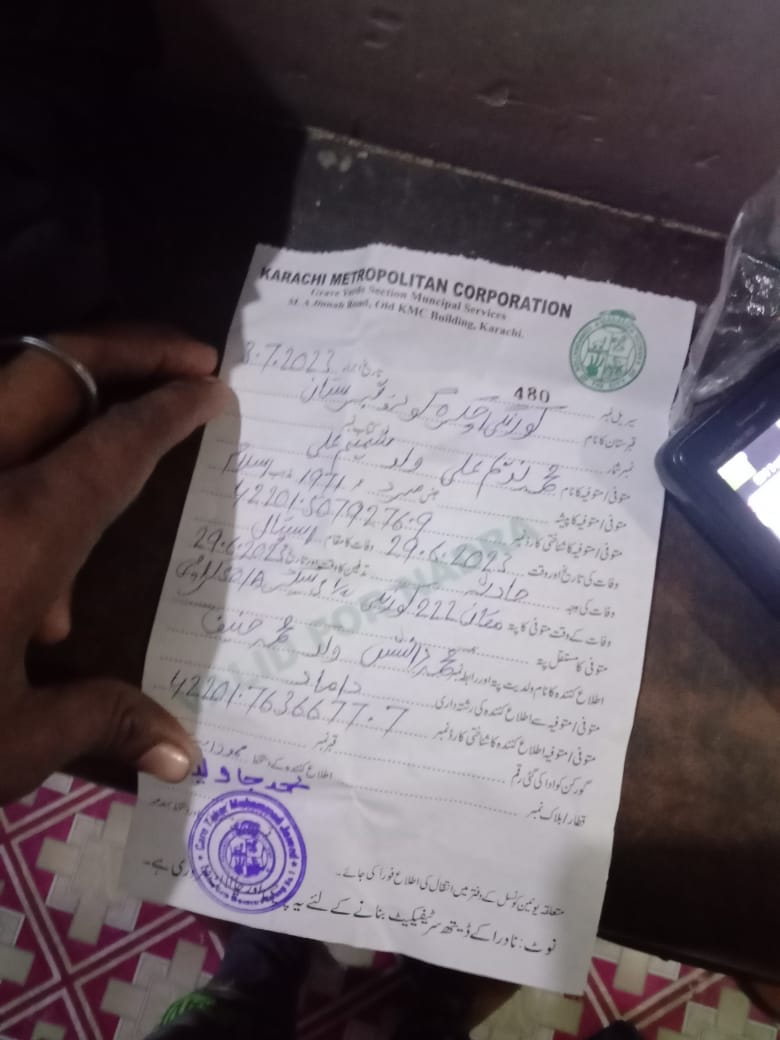 KARACHI METROPOLITAN CORPORATION
Grave Yards Section Muncipal Services
M. A Jinnah Road, Old KMC Building, Karachi.
سیریل نمبر 480 تاریخ اجراء 3.7.2023
قبرستان کا نام کورنگی قبرستان
نمبر شمار کتاب نمبر
متوفی / متوفیہ کا نام محمد ندیم علی ولد شمیم علی
متوفی / متوفیہ کا پیشہ جنس مرد 1971 مذہب اسلام
متوفی / متوفیہ کا شناختی کارڈ نمبر 42201-5079276-9
وفات کی تاریخ اور وقت 29.6.2023 وفات کا مقام اسپتال
وفات کی وجہ حادثہ تدفین کا وقت اور تاریخ 29.6.2023
وفات کے وقت متوفی کا پتہ مکان 222 کورنگی
متوفی کا مستقل پتہ
اطلاع کنندہ کا نام ولدیت پتہ اور رابطہ نمبر محمد دانش ولد محمد حنیف
متوفی / متوفیہ سے اطلاع کنندہ کی رشتہ داری داماد
متوفی / متوفیہ اطلاع کنندہ کا شناختی کارڈ نمبر 42201-7636677-7
گورکن کو ادا کی گئی رقم قبر نمبر
قطار / بلاک نمبر اطلاع کنندہ کے دستخط
محمد جاوید
متعلقہ یونین کونسل کے دفتر میں انتقال کی اطلاع فوراً کی جائے۔
نوٹ : نادرا کے ڈیتھ سرٹیفیکیٹ بنانے کے لئے یہ
VALID FOR NADRA
Care Taker Muhammad Jawed